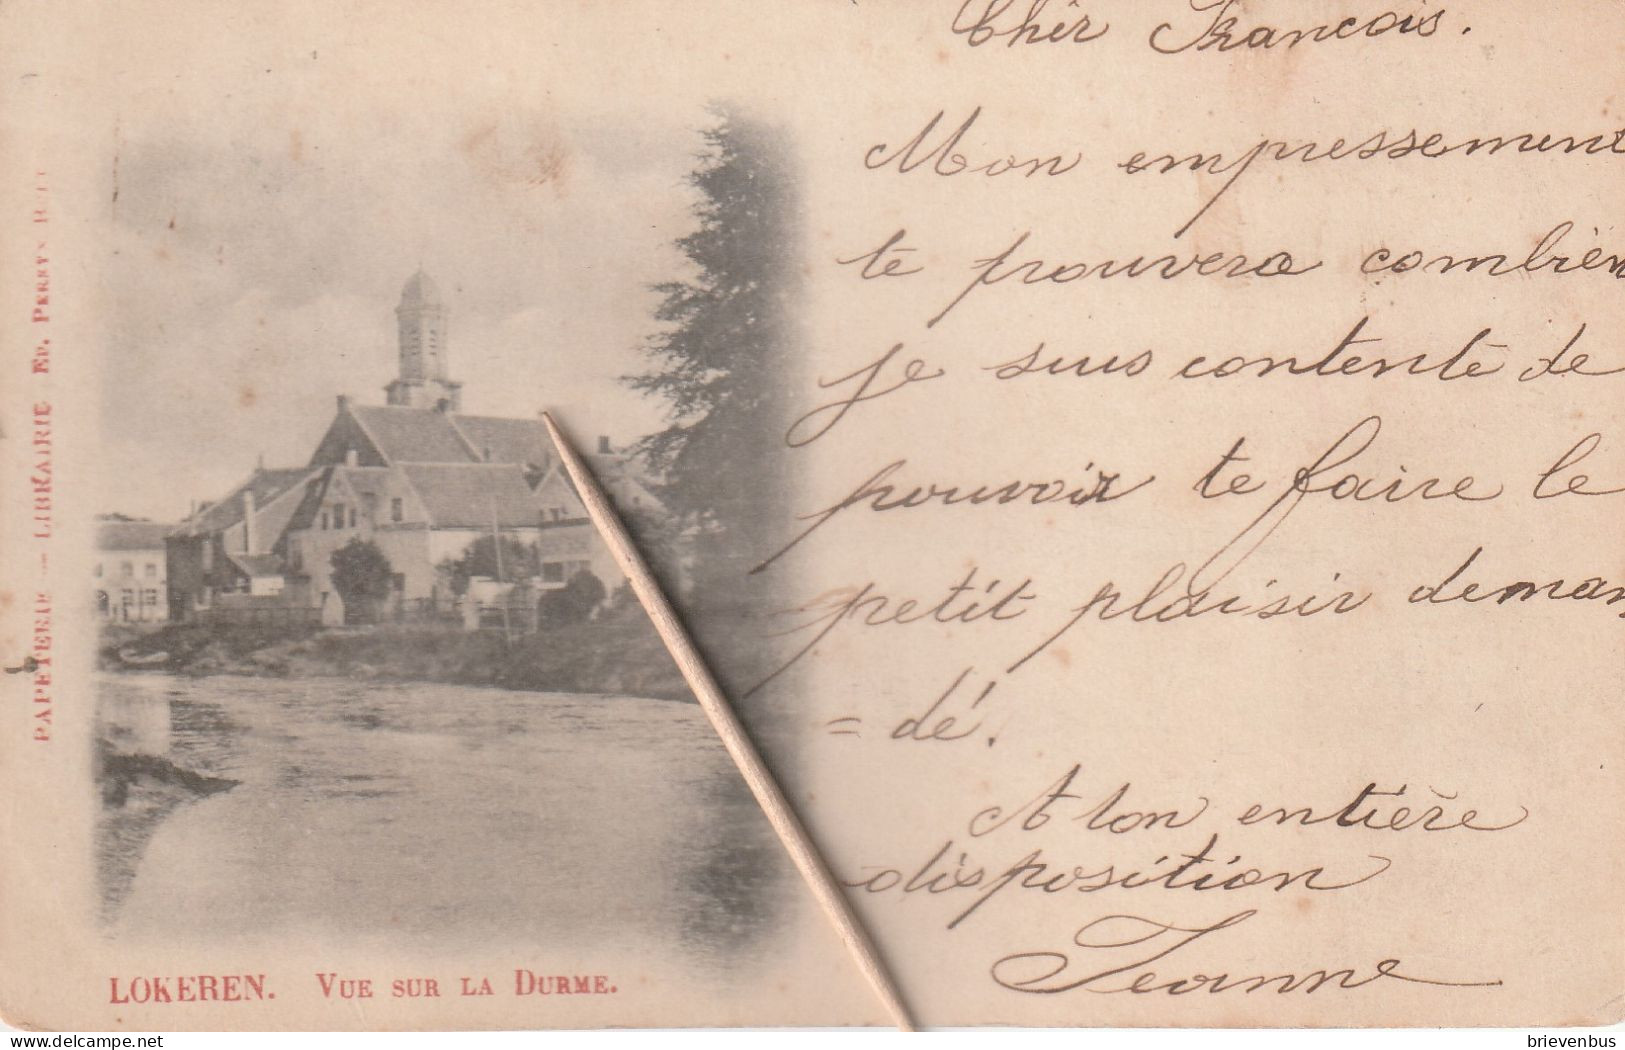 Chèr Francois.
Mon empressement
te prouvera combièn
je suis contente de
pouvoir te faire le
petit plaisir deman
= dé.
A ton entière
disposition
Jeanne
PAPETERIE — LIBRAIRIE ED. PERSYN
LOKEREN. VUE SUR LA DURME.
delcampe.net
brievenbus